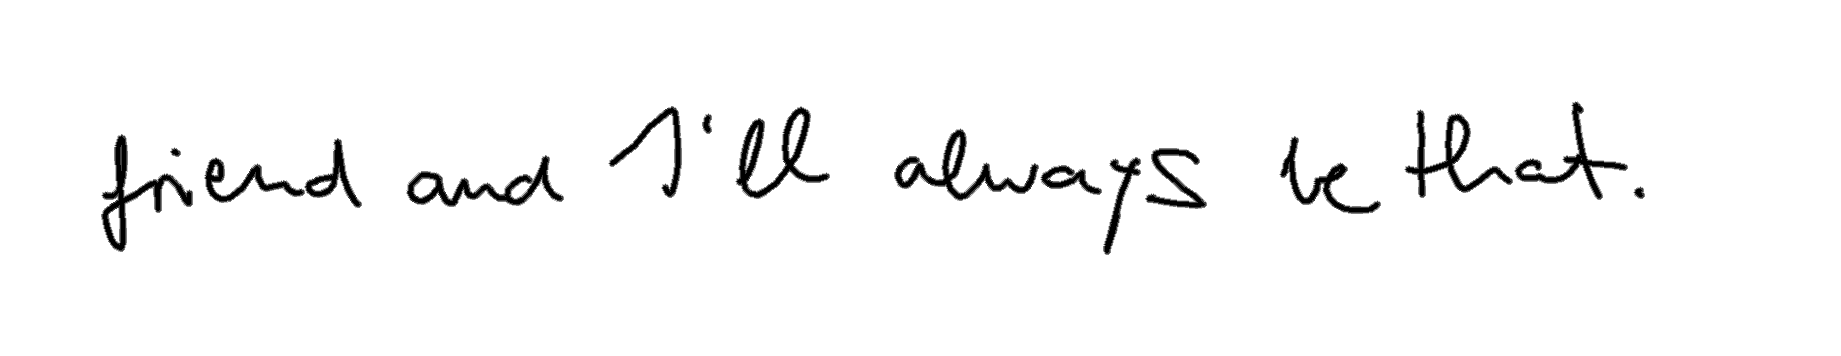 friend and I'll always be that.